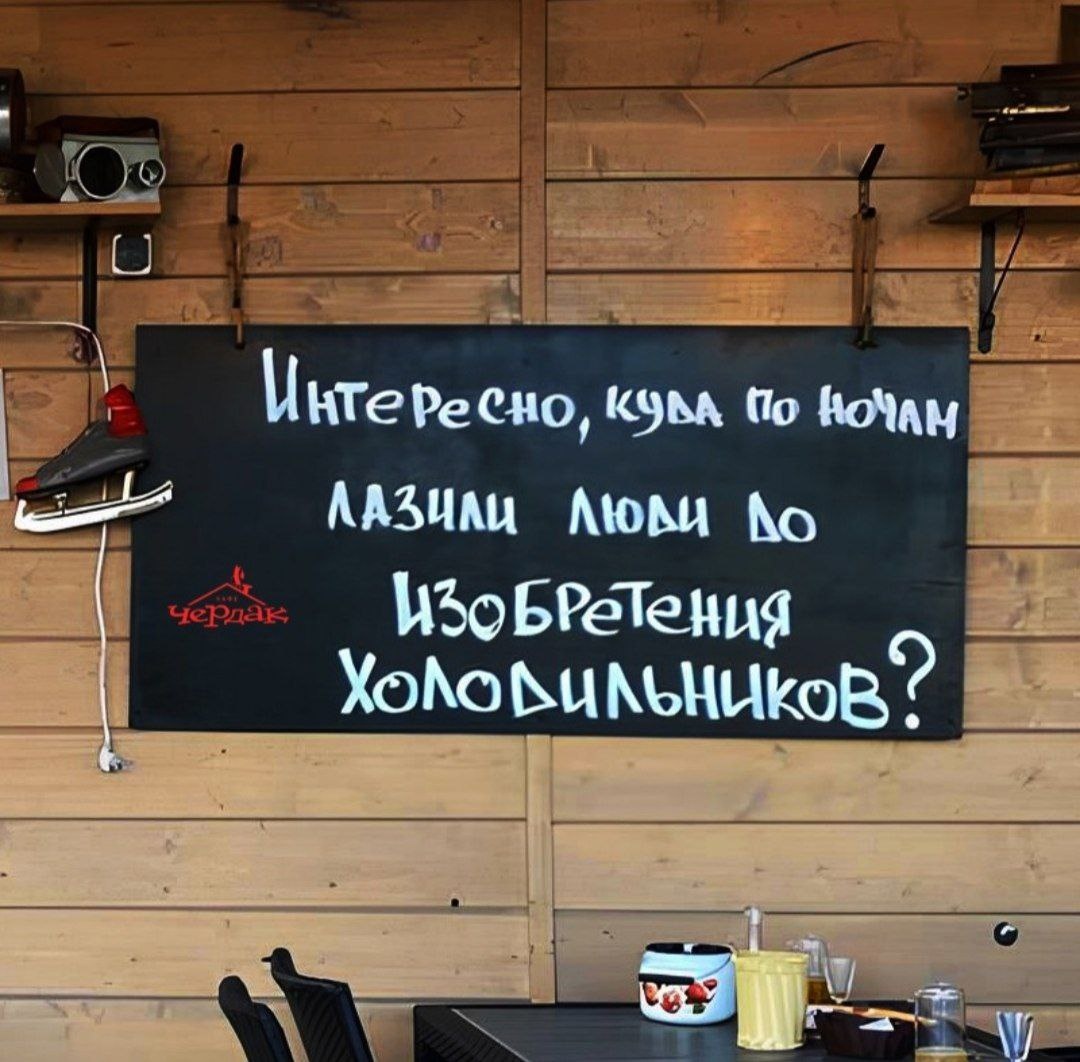 Интересно, куда по ночам
лазили люди до
изобретения
холодильников?
кафе
чердак